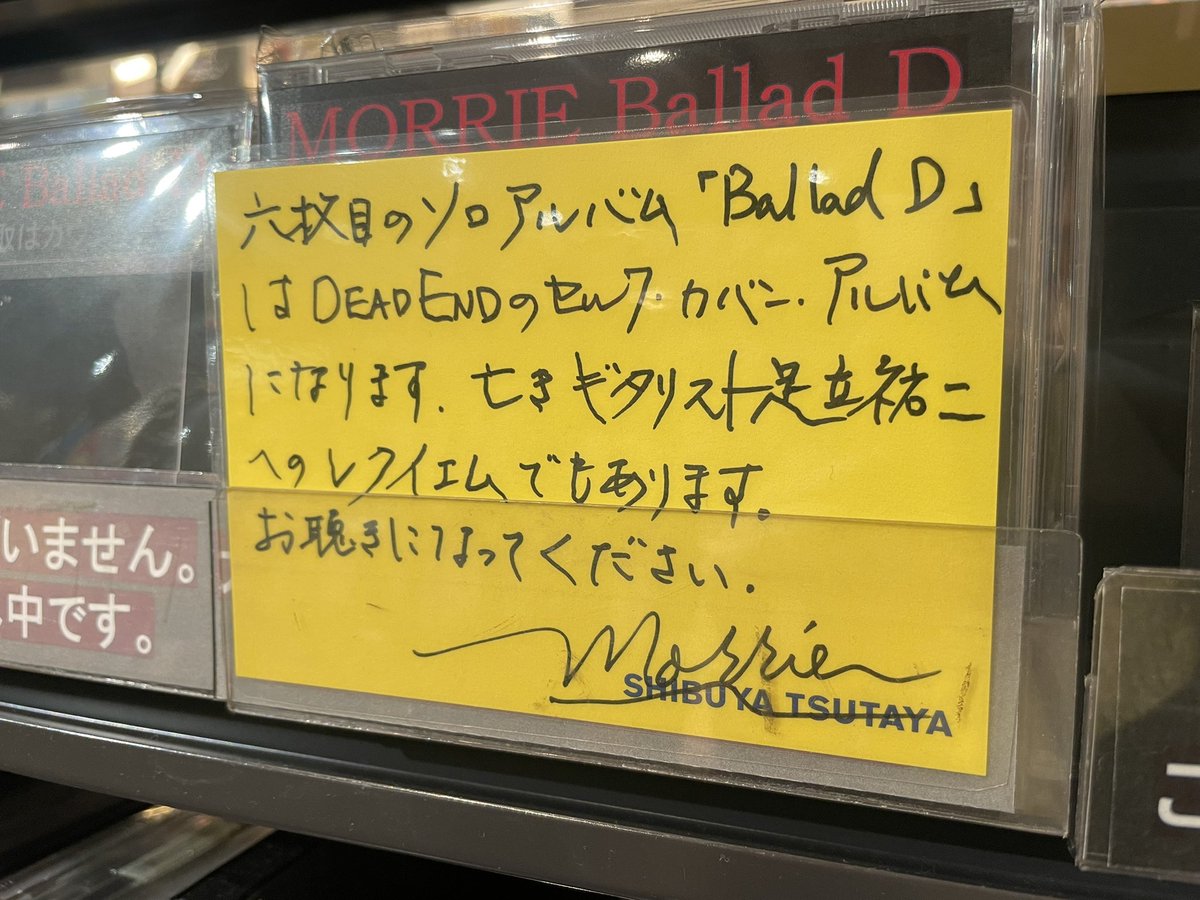 MORRIE Ballad D
六枚目のソロアルバム「Ballad D」
はDEAD ENDのセルフ・カバー・アルバム
になります. 亡きギタリスト足立祐二
へのレクイエムでもあります。
お聴きになってください.
Morrie
SHIBUYA TSUTAYA
Ballad
いません。
中です。